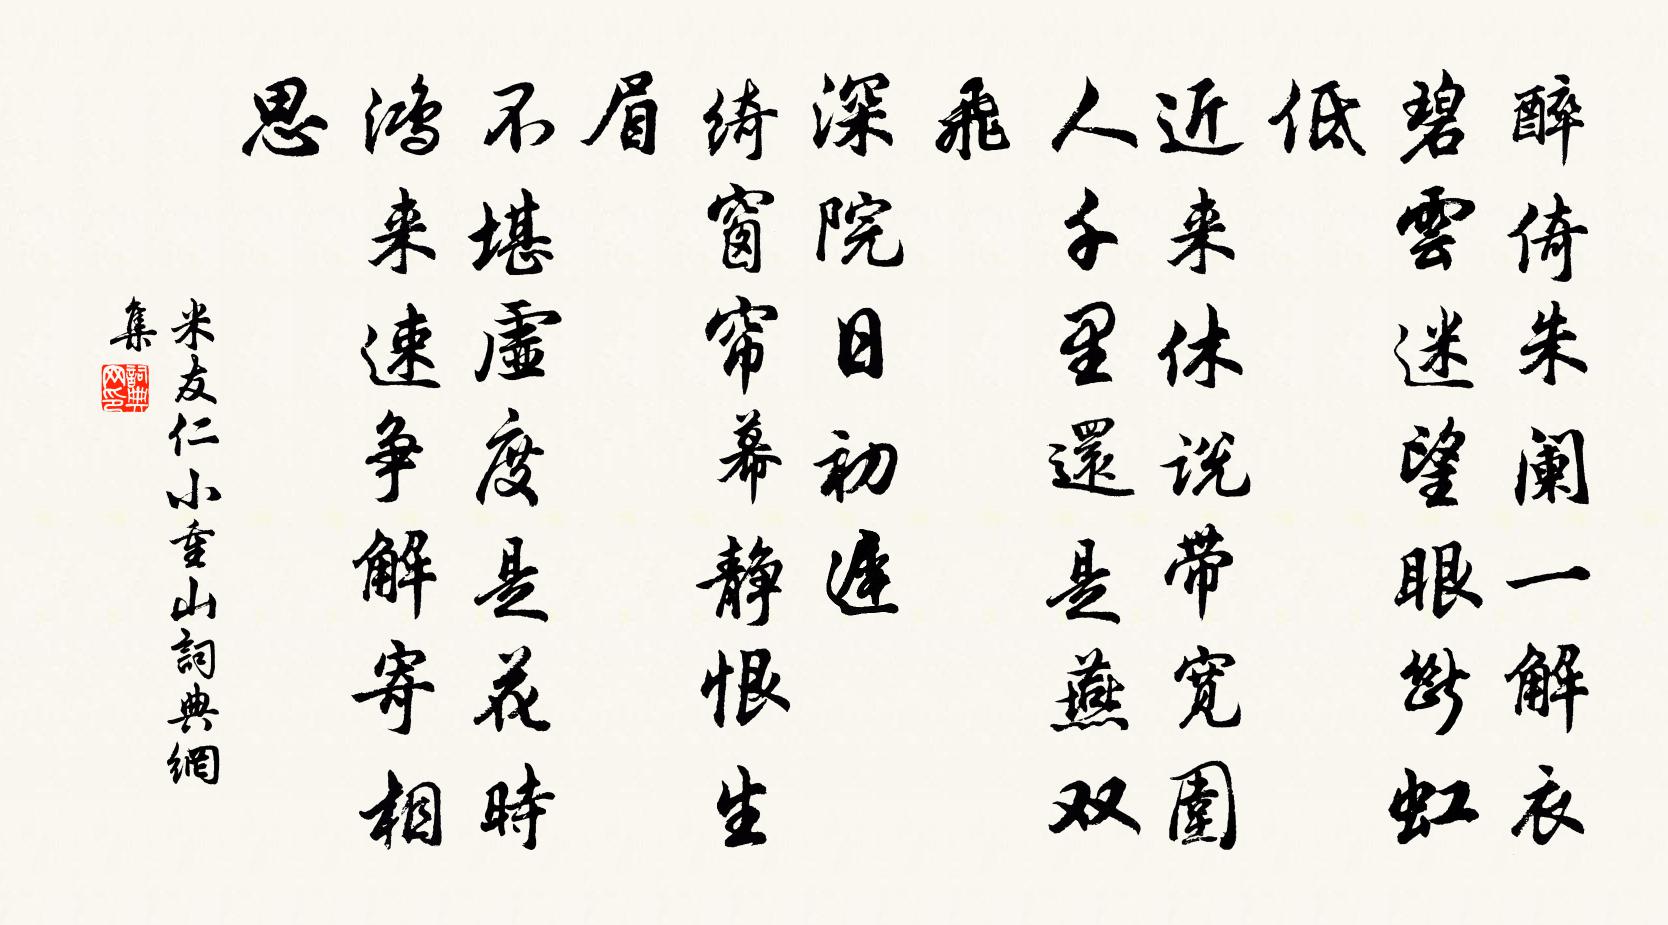 醉倚朱阑一解衣
碧雲迷望眼斷虹
低
近来休说带寬圍
人千里還是燕双
飛
深院日初遲
绮窗帘幕静恨生
眉
不堪虚度是花時
鸿来速争解寄相
思
米友仁小重山詞典網
集
詞典网印